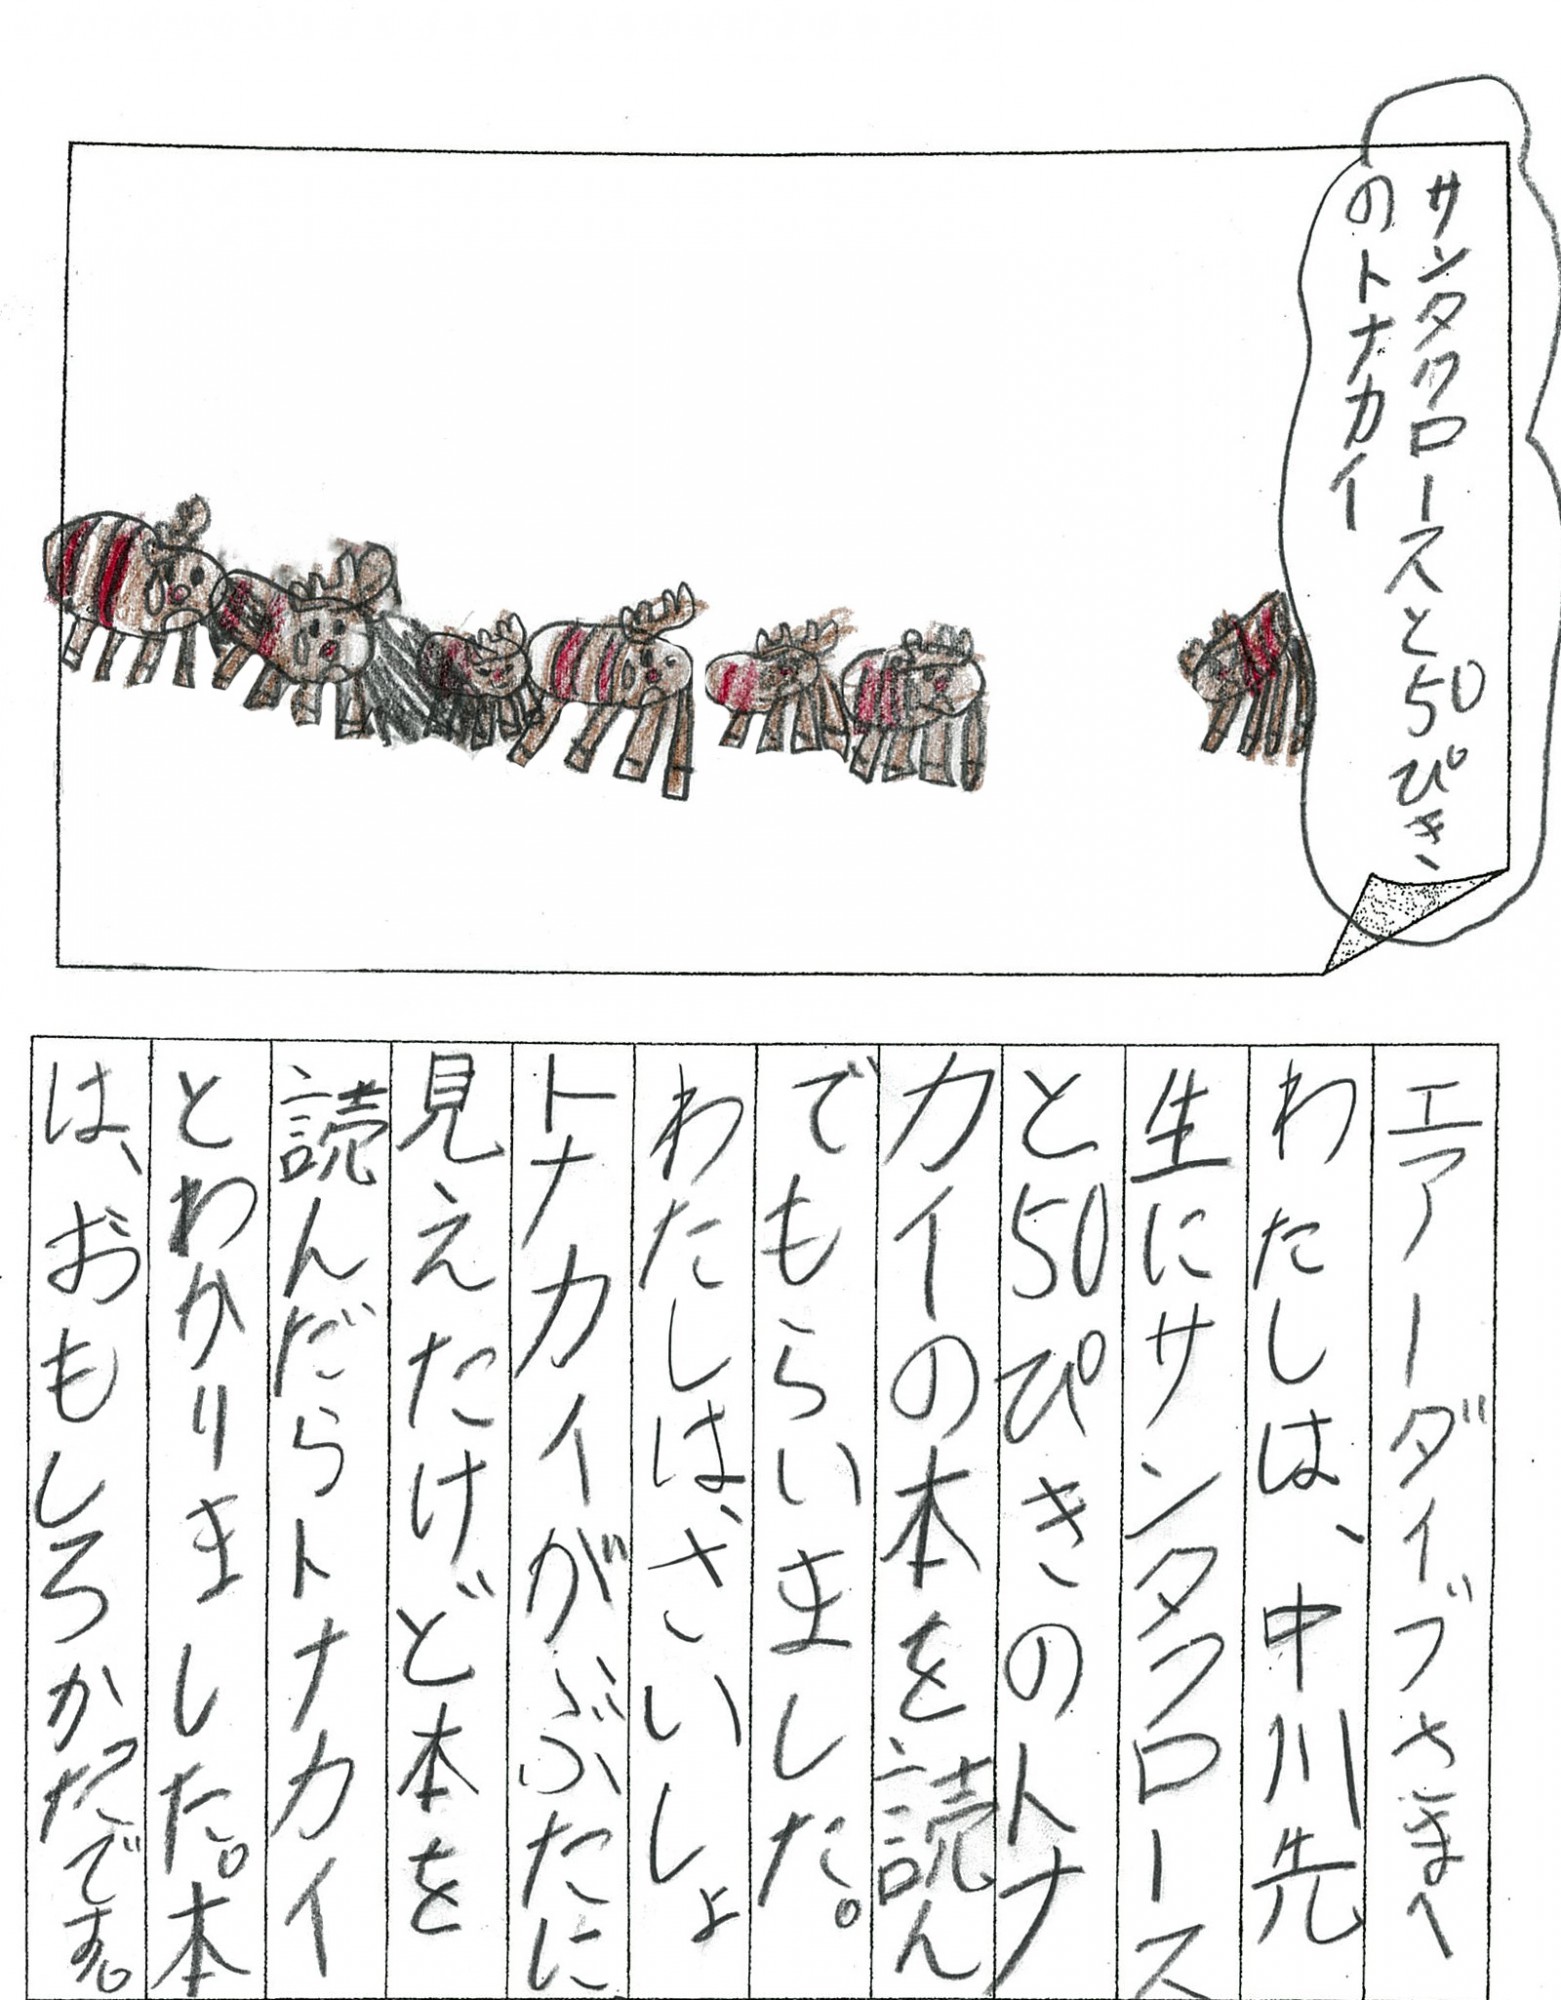 サンタクロースと50ぴき、
のトナカイ
エアーダイブさまへ
わたしは、中川先
生にサンタクロース
と50ぴきのトナ
カイの本を読ん
でもらいました。
わたしは、さいしょ
トナカイがぶたに
見えたけど本を
読んだらトナカイ
とわかりました。本
は、おもしろかったです。